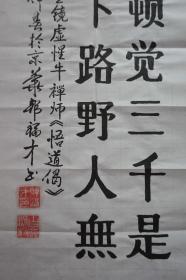 顿觉三千是
下路野人無
镜虚惺牛禅师《悟道偈》
春於京華郝福才书